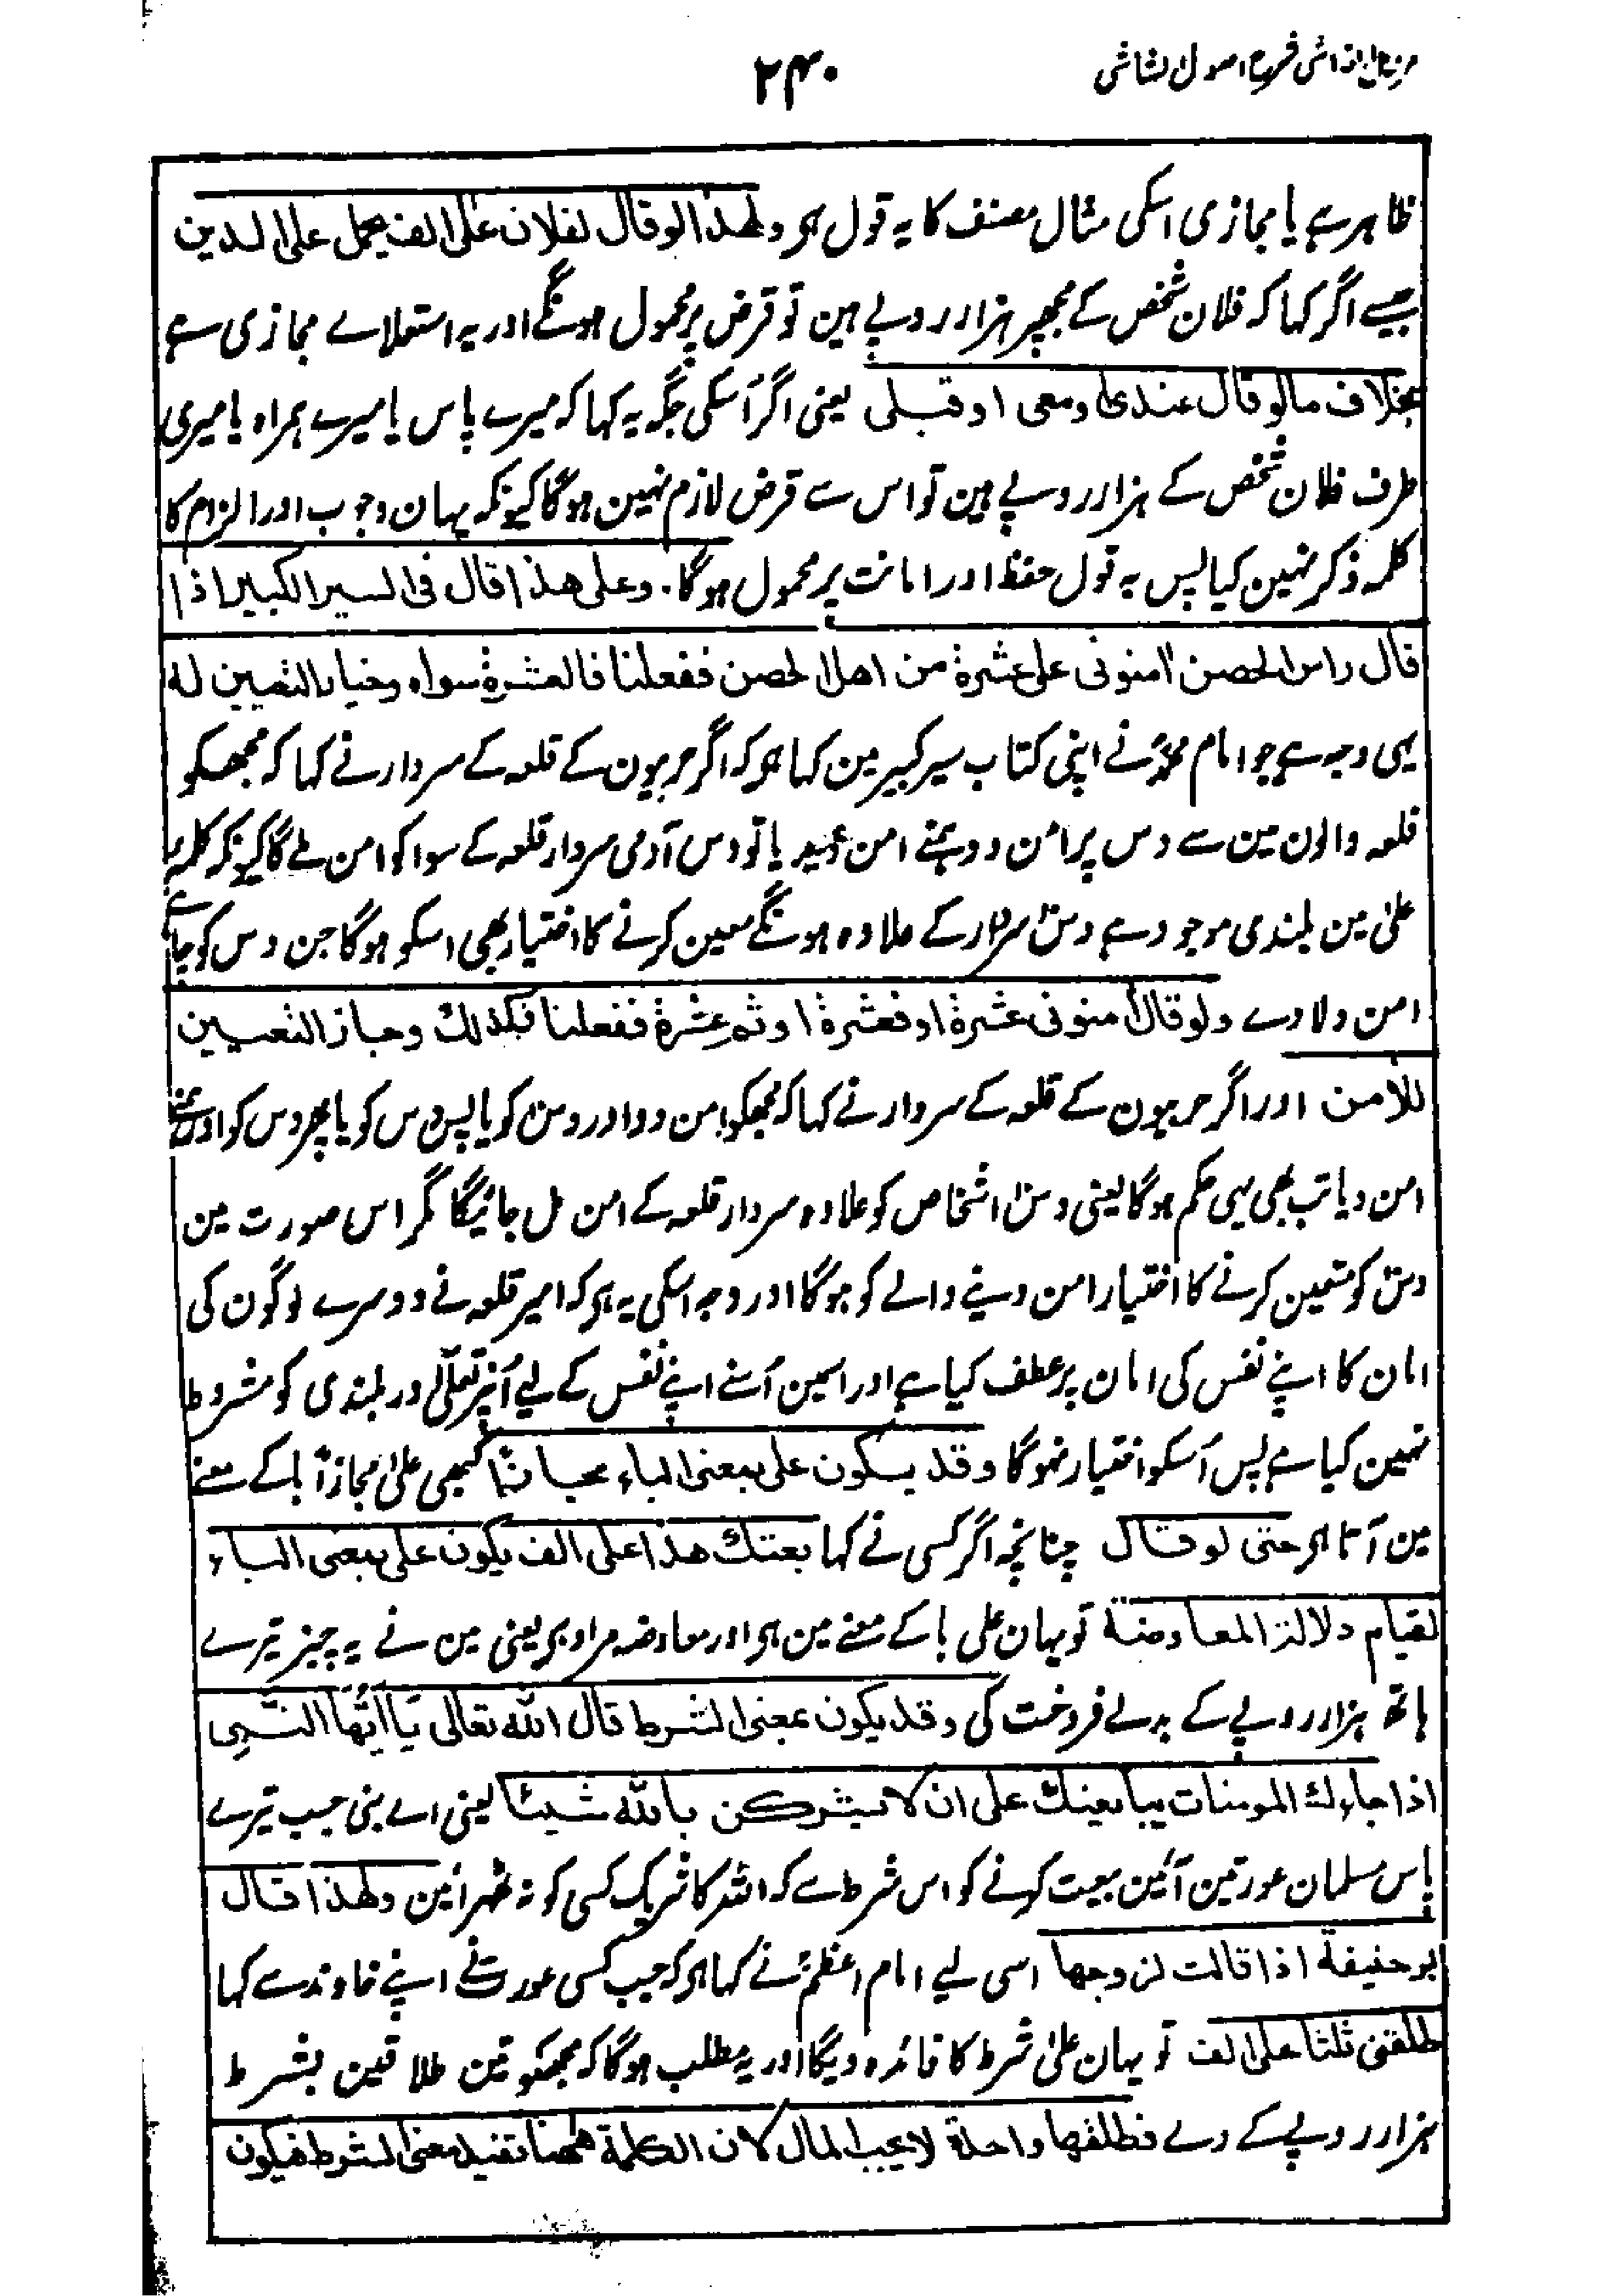 مزیل الغواشی شرح اصول الشاشی
۲۴۰
ظاہر ہے یا مجازی اسکی مثال مصنف کا یہ قول ہو ولهذا لو قال لفلان علیّ الف یحمل علی الدین
جیسے اگر کہا کہ فلان شخص کے مجھپر ہزار روپے ہین تو قرض پر محمول ہونگے اور یہ استعلاے مجازی ہے
بخلاف مالو قال عندی او معی او قبلی یعنی اگر اسکی جگہ یہ کہا کہ میرے پاس یا میرے ہمراہ یا میری
طرف فلان شخص کے ہزار روپے ہین تو اس سے قرض لازم نہین ہوگا کیونکہ یہان وجوب اور الزام کا
کلمہ ذکر نہین کیا پس یہ قول حفظ اور امانت پر محمول ہوگا. وعلی هذا قال فی السیر الکبیر اذا
قال راس الحصن اٰمنونی علی عشرة من اهل الحصن ففعلنا فالعشرة سواه وخیار التعیین له
یہی وجہ ہے جو امام محمدؒ نے اپنی کتاب سیر کبیر مین کہا ہو کہ اگر حربیون کے قلعہ کے سردار نے کہا کہ مجھکو
قلعہ والون مین سے دس پر امن دو ہمنے امن دیدیا تو دس آدمی سردار قلعہ کے سوا کو امن ملے گا کیونکہ کلمہ
علیٰ مین بلندی موجود ہے دس سردار کے علاوہ ہونگے معین کرنے کا اختیار بھی اسکو ہوگا جن دس کو چاہے
امن دلادے ولو قال اٰمنونی عشرة او فعشرة او ثم عشرة ففعلنا فکذلک وجاز التعیین
للاٰمن اور اگر حربیون کے قلعہ کے سردار نے کہا کہ مجھکو امن دو اور دس کو یا پس دس کو یا پھر دس کو اور ہمنے
امن دیا تب بھی یہی حکم ہوگا یعنی دس اشخاص کو علاوہ سردار قلعہ کے امن مل جائیگا مگر اس صورت مین
دس کو متعین کرنے کا اختیار امن دینے والے کو ہوگا اور وجہ اسکی یہ ہو کہ امیر قلعہ نے دوسرے لوگون کی
امان کا اپنے نفس کی امان پر عطف کیا ہے اور اسمین اُسنے اپنے نفس کے لیے اُنپر تعلّی اور بلندی کو مشروط
نہین کیا ہے پس اُسکو اختیار نہوگا وقد یکون علی بمعنی الباء مجازا کبھی علیٰ مجازاً با کے معنے
مین آتا ہو حتی لو قال چنانچہ اگر کسی نے کہا بعتک هذا علی الف یکون علی بمعنی الباء
لقیام دلالة المعاوضة تو یہان علی با کے معنے مین ہو اور معاوضہ مراد ہو یعنی مین نے یہ چیز تیرے
ہاتھ ہزار روپے کے بدلے فروخت کی وقد یکون بمعنی الشرط قال اللہ تعالی یَا اَیُّهَا النَّبِی
اذا جاءک المومنات یبایعنک علی ان لا یشرکن باللہ شیئا یعنی اے نبی جب تیرے
پاس مسلمان عورتین آئین بیعت کرنے کو اس شرط سے کہ اللہ کا شریک کسی کو نہ ٹھرائین ولهذا قال
ابو حنیفة اذا قالت لزوجها اسی لیے امام اعظمؒ نے کہا ہو کہ جب کسی عورت نے اپنے خاوند سے کہا
طلقنی ثلثا علی الف تو یہان علیٰ شرط کا فائدہ دیگا اور یہ مطلب ہوگا کہ مجھکو تین طلاقین بشرط
ہزار روپے کے دے فطلقها واحدة لا یجب المال لان الکلمة ههنا تفید معنی الشرط فیکون